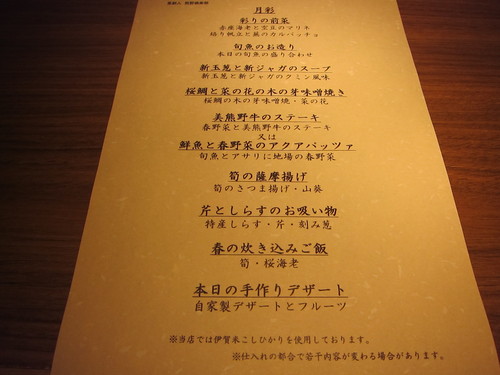 月彩
彩りの前菜
赤座海老と空豆のマリネ
焙り帆立と蕪のカルパッチョ
旬魚のお造り
本日の旬魚の盛り合わせ
新玉葱と新ジャガのスープ
新玉葱と新ジャガのクミン風味
桜鯛と菜の花の木の芽味噌焼き
桜鯛の木の芽味噌焼・菜の花
美熊野牛のステーキ
春野菜と美熊野牛のステーキ
又は
鮮魚と春野菜のアクアパッツァ
旬魚とアサリに地場の春野菜
筍の薩摩揚げ
筍のさつま揚げ・山葵
芹としらすのお吸い物
特産しらす・芹・刻み葱
春の炊き込みご飯
筍・桜海老
本日の手作りデザート
自家製デザートとフルーツ
※当店では伊賀米こしひかりを使用しております。
※仕入れの都合で若干内容が変わる場合があります。